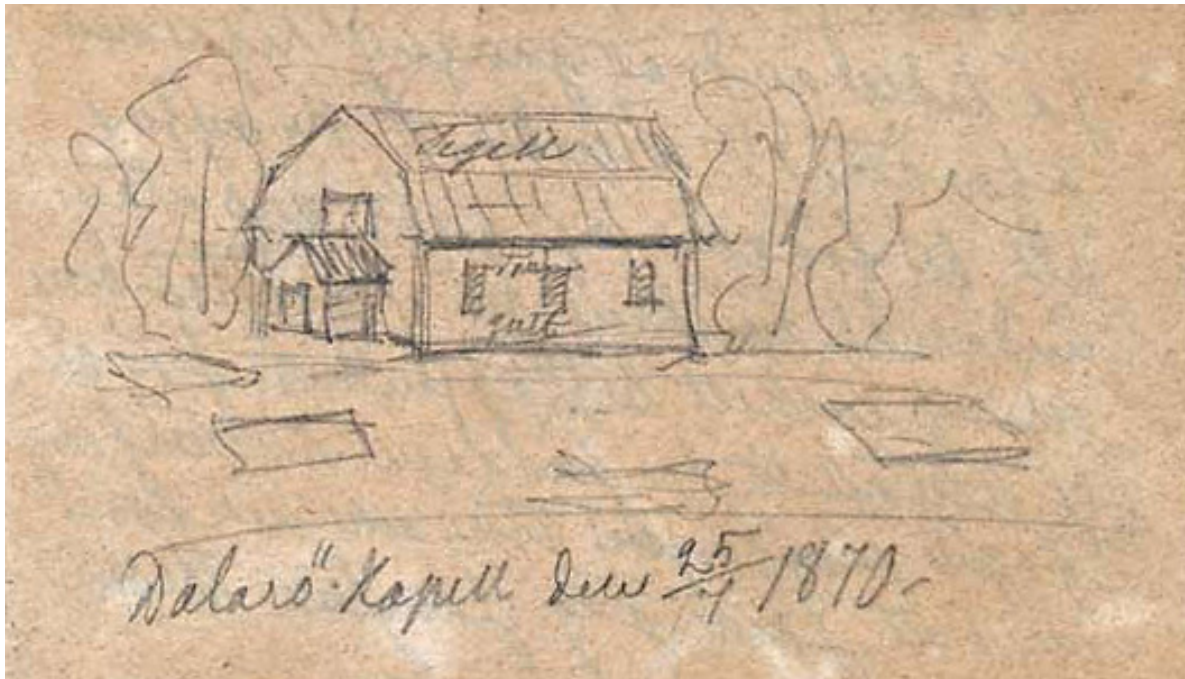 Tegel
gult
Dalarö-Kapell den 25/7 1870